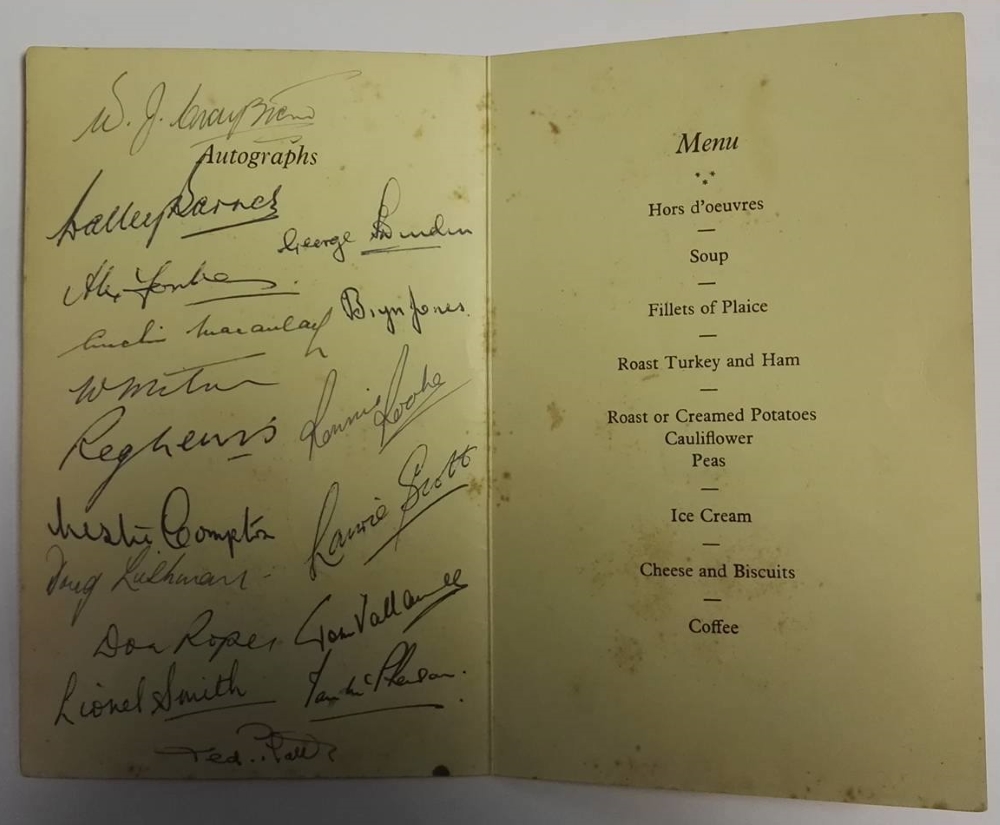 W. J. Crayston
Autographs
Walley Barnes
George Swindin
Alex Forbes
Archie Macaulay
Bryn Jones.
W Milne
Reg Lewis
Ronnie Rooke
Leslie Compton
Laurie Scott
Doug Lishman
Don Roper
Tom Vallance
Lionel Smith
Ian McPherson.
Ted. Platt
Menu
Hors d'oeuvres
—
Soup
—
Fillets of Plaice
—
Roast Turkey and Ham
—
Roast or Creamed Potatoes
Cauliflower
Peas
—
Ice Cream
—
Cheese and Biscuits
—
Coffee